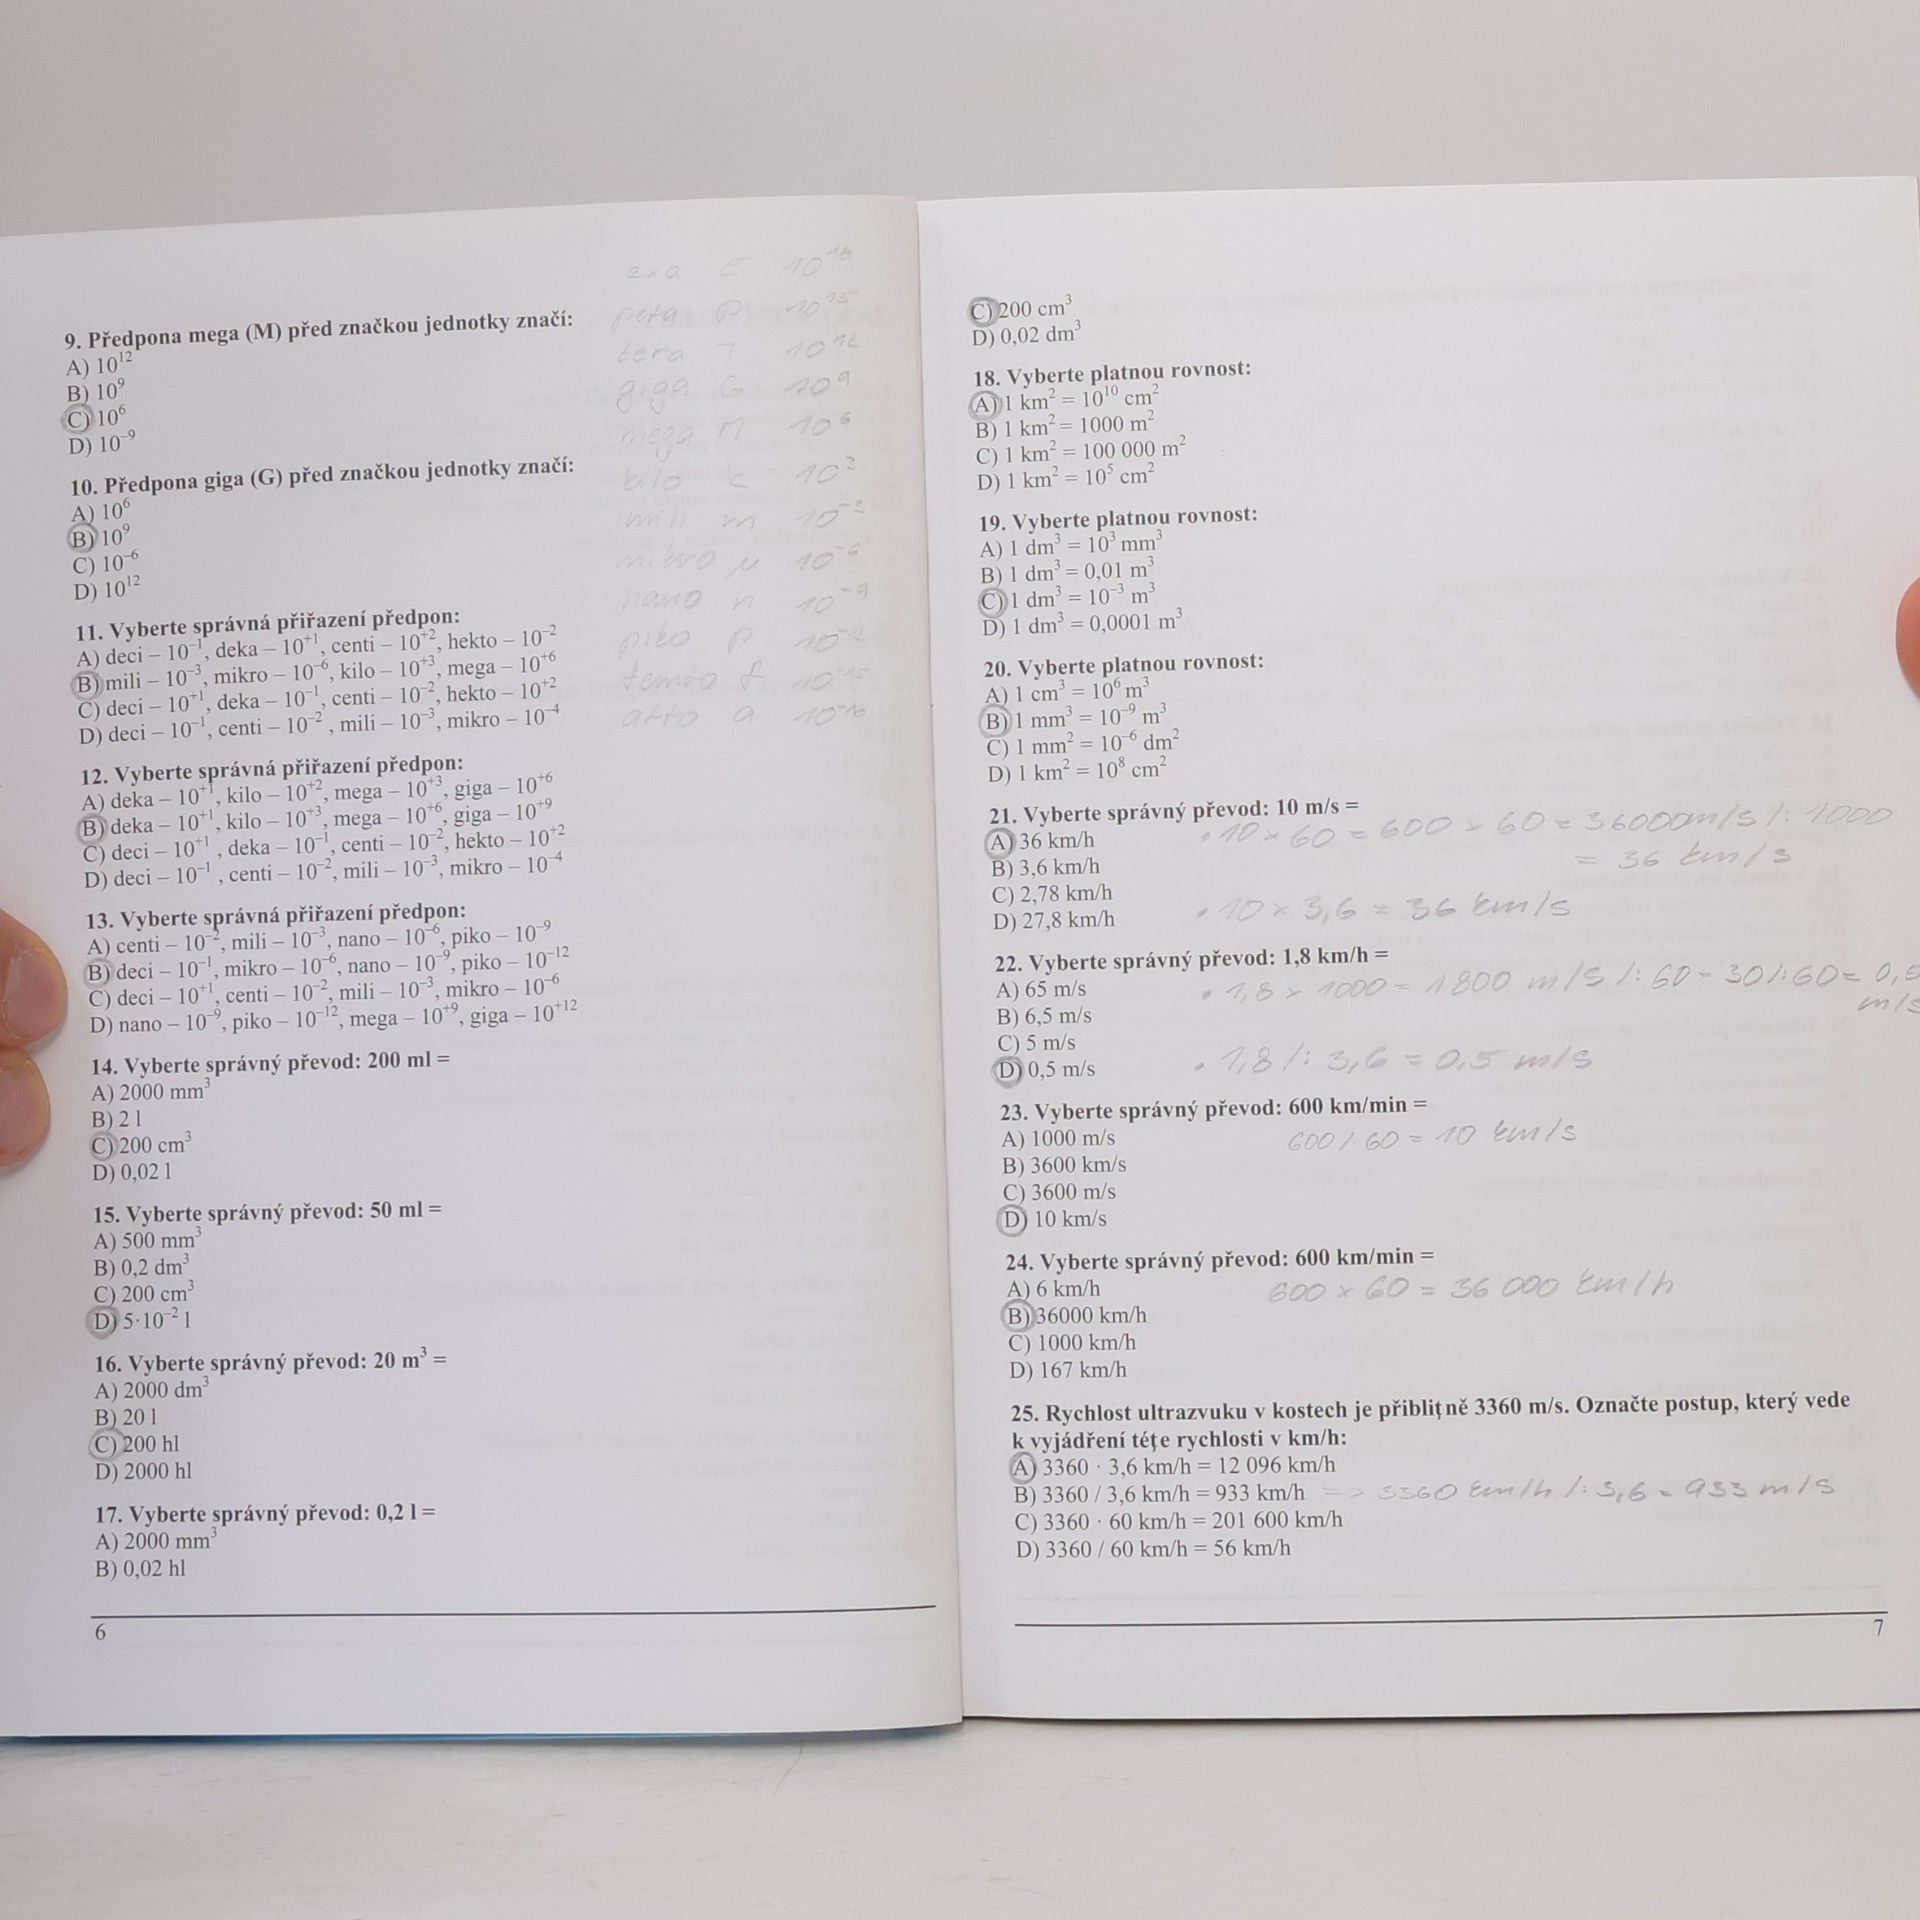 exa E 10^18
peta P 10^15
tera T 10^12
giga G 10^9
mega M 10^6
kilo k 10^3
mili m 10^-3
mikro μ 10^-6
nano n 10^-9
piko p 10^-12
femto f 10^-15
atto a 10^-18
9. Předpona mega (M) před značkou jednotky značí:
A) 10^12
B) 10^9
C) 10^6
D) 10^–9
10. Předpona giga (G) před značkou jednotky značí:
A) 10^6
B) 10^9
C) 10^–6
D) 10^12
11. Vyberte správná přiřazení předpon:
A) deci – 10^–1, deka – 10^+1, centi – 10^+2, hekto – 10^–2
B) mili – 10^–3, mikro – 10^–6, kilo – 10^+3, mega – 10^+6
C) deci – 10^+1, deka – 10^–1, centi – 10^–2, hekto – 10^+2
D) deci – 10^–1, centi – 10^–2 , mili – 10^–3, mikro – 10^–4
12. Vyberte správná přiřazení předpon:
A) deka – 10^+1, kilo – 10^+2, mega – 10^+3, giga – 10^+6
B) deka – 10^+1, kilo – 10^+3, mega – 10^+6, giga – 10^+9
C) deci – 10^+1 , deka – 10^–1, centi – 10^–2, hekto – 10^+2
D) deci – 10^–1 , centi – 10^–2, mili – 10^–3, mikro – 10^–4
13. Vyberte správná přiřazení předpon:
A) centi – 10^–2, mili – 10^–3, nano – 10^–6, piko – 10^–9
B) deci – 10^–1, mikro – 10^–6, nano – 10^–9, piko – 10^–12
C) deci – 10^+1, centi – 10^–2, mili – 10^–3, mikro – 10^–6
D) nano – 10^–9, piko – 10^–12, mega – 10^+9, giga – 10^+12
14. Vyberte správný převod: 200 ml =
A) 2000 mm³
B) 2 l
C) 200 cm³
D) 0,02 l
15. Vyberte správný převod: 50 ml =
A) 500 mm³
B) 0,2 dm³
C) 200 cm³
D) 5·10^–2 l
16. Vyberte správný převod: 20 m³ =
A) 2000 dm³
B) 20 l
C) 200 hl
D) 2000 hl
17. Vyberte správný převod: 0,2 l =
A) 2000 mm³
B) 0,02 hl
6
C) 200 cm³
D) 0,02 dm³
18. Vyberte platnou rovnost:
A) 1 km² = 10^10 cm²
B) 1 km² = 1000 m²
C) 1 km² = 100 000 m²
D) 1 km² = 10^5 cm²
19. Vyberte platnou rovnost:
A) 1 dm³ = 10³ mm³
B) 1 dm³ = 0,01 m³
C) 1 dm³ = 10^–3 m³
D) 1 dm³ = 0,0001 m³
20. Vyberte platnou rovnost:
A) 1 cm³ = 10^6 m³
B) 1 mm³ = 10^–9 m³
C) 1 mm² = 10^–6 dm²
D) 1 km² = 10^8 cm²
21. Vyberte správný převod: 10 m/s =
A) 36 km/h • 10 x 60 = 600 x 60 = 36000m/s /: 1000
B) 3,6 km/h = 36 km/s
C) 2,78 km/h
D) 27,8 km/h • 10 x 3,6 = 36 km/s
22. Vyberte správný převod: 1,8 km/h =
A) 65 m/s • 1,8 x 1000 = 1800 m/s /: 60 = 30 /: 60 = 0,5
B) 6,5 m/s m/s
C) 5 m/s
D) 0,5 m/s • 1,8 /: 3,6 = 0,5 m/s
23. Vyberte správný převod: 600 km/min =
A) 1000 m/s 600 /: 60 = 10 km/s
B) 3600 km/s
C) 3600 m/s
D) 10 km/s
24. Vyberte správný převod: 600 km/min =
A) 6 km/h 600 x 60 = 36 000 km/h
B) 36000 km/h
C) 1000 km/h
D) 167 km/h
25. Rychlost ultrazvuku v kostech je přibliţně 3360 m/s. Označte postup, který vede
k vyjádření téţe rychlosti v km/h:
A) 3360 · 3,6 km/h = 12 096 km/h
B) 3360 / 3,6 km/h = 933 km/h => 3360 km/h /: 3,6 = 933 m/s
C) 3360 · 60 km/h = 201 600 km/h
D) 3360 / 60 km/h = 56 km/h
7